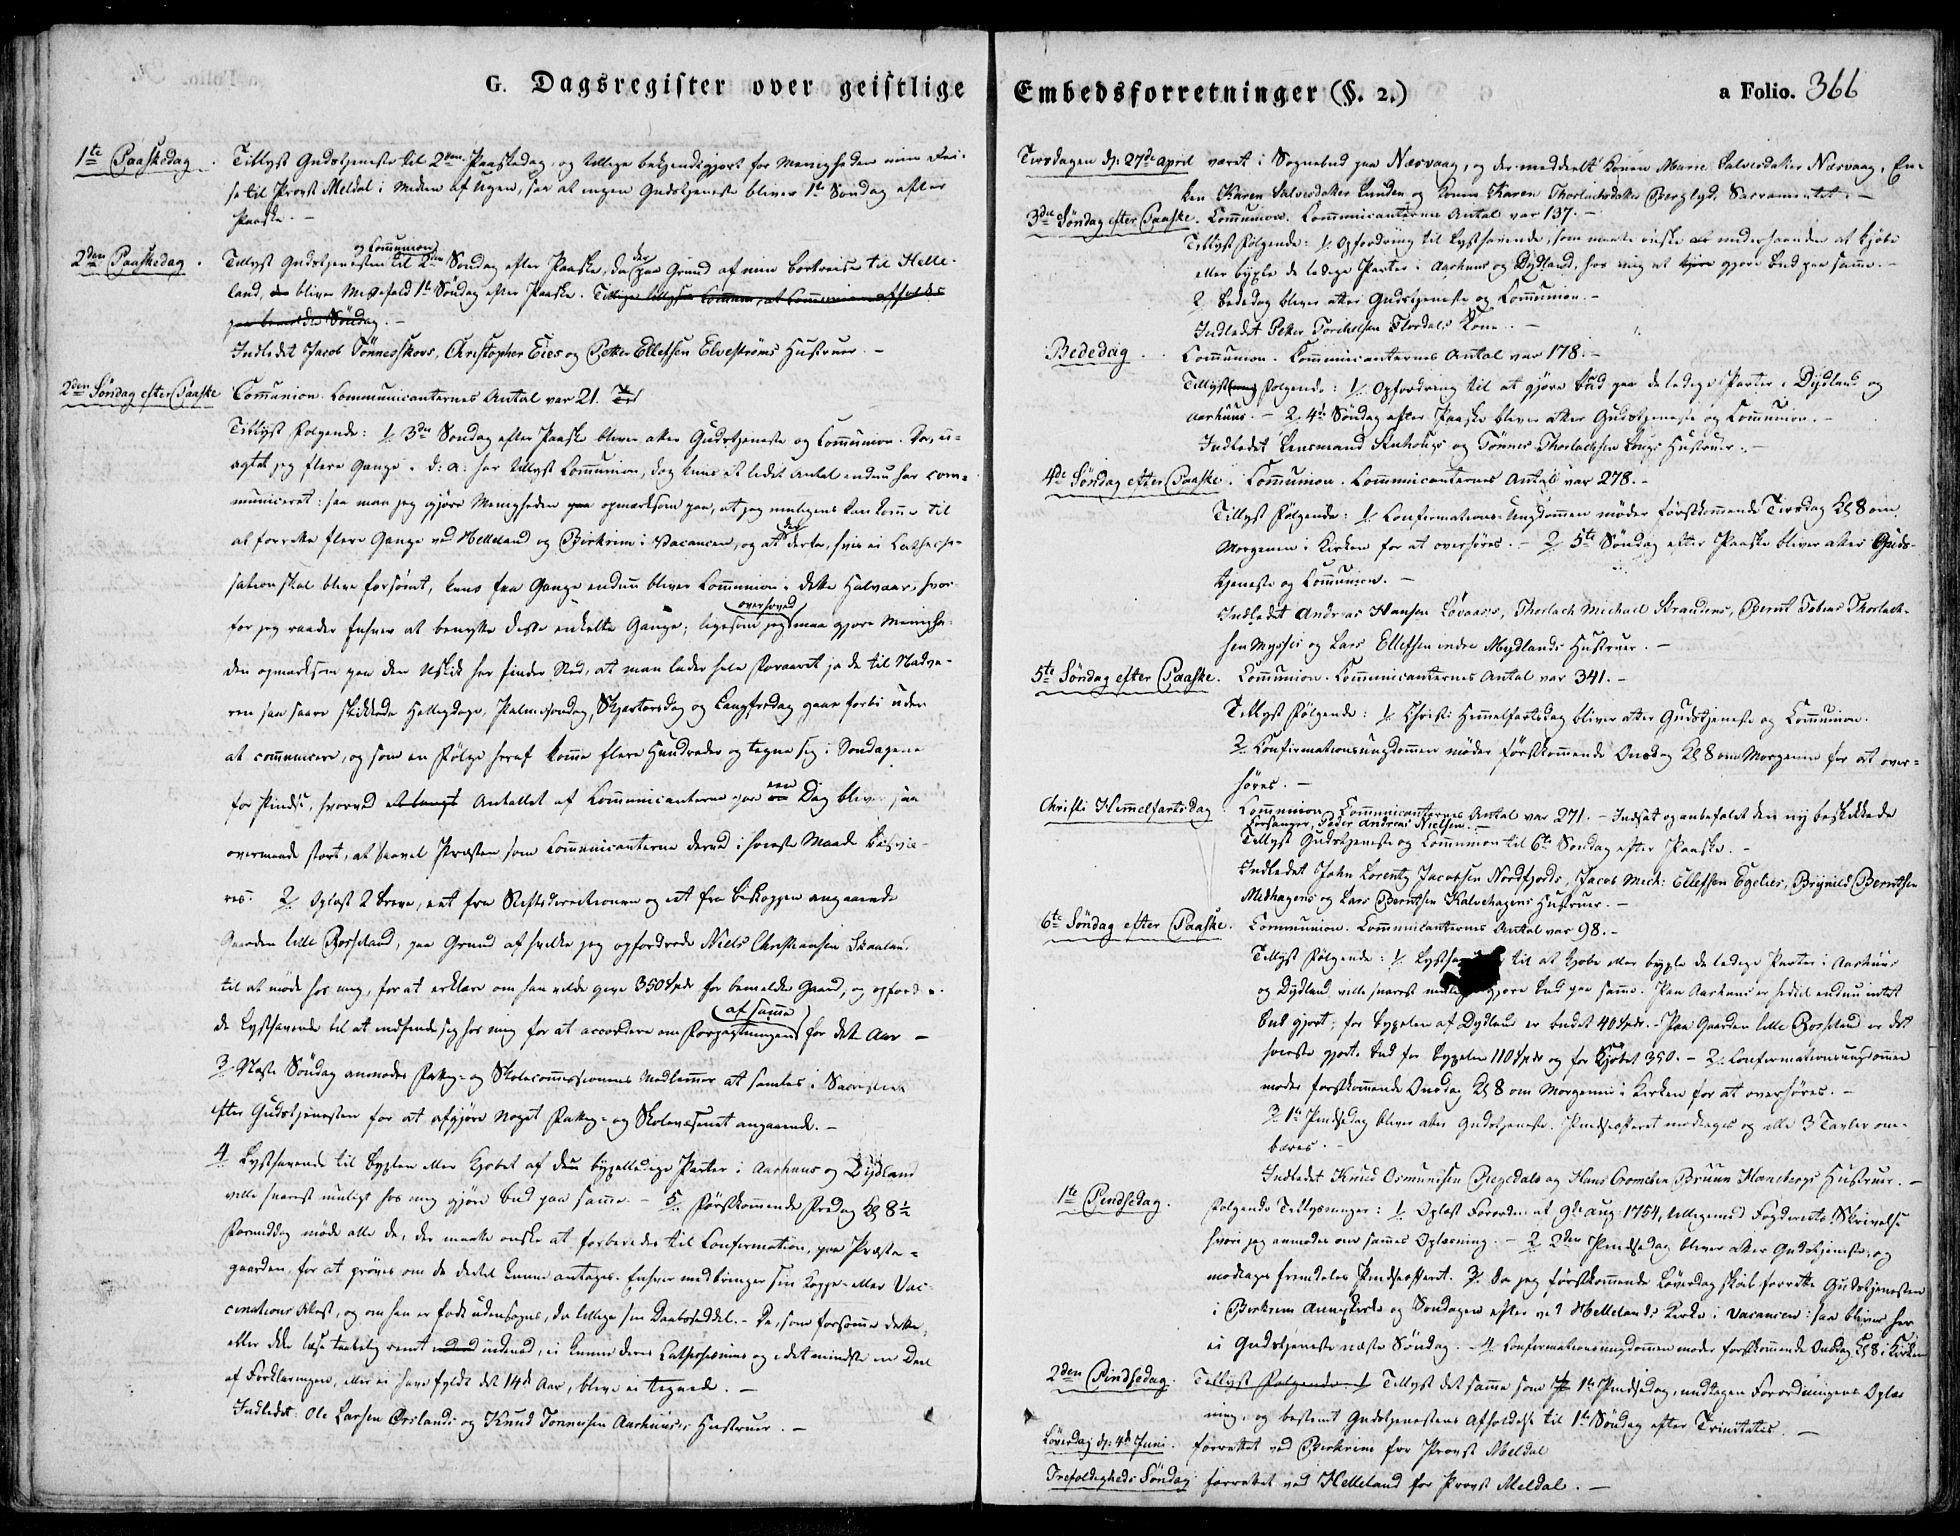 G. Dagsregister over geistlige
1te Paaskedag. Tillyst Gudstjeneste til 2den Paaskedag, og tillige bekjendtgjort for Menigheden min Rei-
se til Provst Meldal i Midten af Ugen, saa at ingen Gudstjeneste bliver 1te Søndag efter
Paaske. –
2den Paaskedag. Tillyst Gudstjenesten og Communion til 2den Søndag efter Paaske, da der paa Grund af min Bortreise til Helle-
land, bliver Messefald 1te Søndag efter Paaske. Tillige tillyses Commun, at Communion afholdes
paa bemeldte Søndag. –
Indledet Jacob Tønnesskovs, Christopher Eies og Petter Ellefsen Elvestrøms Hustruer. –
2den Søndag efter Paaske Communion. Communicanternes Antal var 21.
Tillyst Følgende: 1. 3die Søndag efter Paaske bliver atter Gudstjeneste og Communion. Da, u-
agtet jeg flere Gange d: a: har tillyst Communion, dog kuns et lidet Antal endnu har com-
municeret: saa maa jeg gjøre Menigheden opmærksom paa, at jeg muligens kan komme til
at forrette flere Gange ved Helleland og Birkrem i Vacancen, og at der derfor, hvis ei Catheche-
sationen skal blive forsømt, kuns faa Gange endnu bliver Communion i dette Halvaar, hvor-
for jeg raader Enhver at benytte disse enkelte Gange; ligesom jeg overhoved maa gjøre Menighe-
den opmærksom paa den Uskik her finder Sted, at man lader hele Foraaret ja de til Nadve-
ren saa saare skikkede Helligdage, Palmesøndag, Skjærtorsdag og Langfredag gaae forbi uden
at communicere, og som en Følge heraf komme flere Hundreder og tegne sig i Søndagene
for Pindse, hvorved Antallet af Communicanterne paa een Dag bliver saa
overmaade stort, at saavel Præsten som Communicanterne derved i høieste Maade besvæ-
res. 2. Oplæst 2 Breve, eet fra Stiftsdirectionen og eet fra Biskoppen angaaende
Gaarden lille Rosseland, paa Grund af hvilke jeg opfordrede Niels Christiansen Skaaland
til at møde hos mig, for at erklære om han vilde give 350 Spdr for bemeldte Gaard, og opfordre-
de Lysthavende til at indfinde sig hos mig for at accordere om Forpagtningen af samme for dette Aar –
3. Næste Søndag anmodes Fattig- og Skolecommissionens Medlemmer at samles i Sacristiet
efter Gudstjenesten for at afgjøre Noget Fattig- og Skolevæsenet angaaende. –
4. Lysthavende til Bygslen eller Kjøbet af de bygselledige Parter i Aarhuus og Dydland
ville snarest muligt hos mig gjøre Bud paa samme. – 5. Førstkommende Fredag Kl 8½
Formiddag møde alle de, der maatte ønske at forberedes til Confirmation, paa Præste-
gaarden, for at prøves om de dertil kunne antages. Enhver medbringer sin Koppe- eller Vac-
cinations Attest, og om han er født udensogns, da tillige sin Daabsseddel. – De, som forsømme dette,
eller ikke læse taalelig reent indenad, ei kunne deres Cathechismus og i det mindste en Deel
af Forklaringen, eller ei have fyldt det 14de Aar, blive ei tegnede. –
Indledet: Ole Larsen Ørslands og Knud Tønnesen Aarhuus's Hustruer. –
Embedsforretninger (§. 2.)
a Folio. 366
Tirsdagen d: 27de April været i Sognebud paa Næsvaag, og der meddeelt Konen Marie Salvesdatter Næsvaag, En-
ken Karen Salvesdatter Lunden og Konen Karen Thorlachsdatter Berglyd Sacramentet. –
3die Søndag efter Paaske. Communion. Communicanternes Antal var 137. –
Tillyst Følgende: 1. Opfordring til Lysthavende, som maatte ønske underhaanden at kjøbe
eller bygsle de ledige Parter i Aarhuus og Dydland, hos mig at gjøre Bud paa samme. –
2. Bededag bliver atter Gudstjeneste og Communion. –
Indledet Petter Torchelsen Flordals Kone. –
Bededag. Communion. Communicanternes Antal var 178. –
Tillyst Følgende: 1. Opfordring til at gjøre Bud paa de ledige Parter i Dydland og
Aarhuus. – 2. 4de Søndag efter Paaske bliver atter Gudstjeneste og Communion. –
Indledet Lensmand Anhougs og Tønnes Thorlachsen Longs Hustruer. –
4de Søndag efter Paaske. Communion. Communicanternes Antal var 278. –
Tillyst Følgende: 1. Confirmations-Ungdommen møder førstkommende Tirsdag Kl 8 om
Morgenen i Kirken for at overhøres. – 2. 5te Søndag efter Paaske bliver atter Guds-
tjeneste og Communion. –
Indledet Andreas Hansen Løvaas's, Thorlach Michael Strandens, Bernt Tobias Thorlach-
sen Mysses og Lars Ellefsen indre Mydlands Hustruer. –
5te Søndag efter Paaske. Communion. Communicanternes Antal var 341. –
Tillyst Følgende: 1. Christi Himmelfartsdag bliver atter Gudstjeneste og Communion.
2. Confirmationsungdommen møder førstkommende Onsdag Kl 8 om Morgenen for at over-
høres. –
Christi Himmelfartsdag. Communion. Communicanternes Antal var 271. – Indsat og anbefalet den ny beskikkede
Forsanger, Peder Andreas Nielsen. –
Tillyst Gudstjeneste og Communion til 6te Søndag efter Paaske. –
Indledet John Lorentz Jacobsen Nordfjords, Jacob Mich: Ellefsen Egelies, Brynild Berntsen
Midhagens og Lars Berntsen Kalvehagens Hustruer. –
6te Søndag efter Paaske. Communion. Communicanternes Antal var 98. –
Tillyst Følgende: 1. til at kjøbe eller bygsle de ledige Parter i Aarhuus
og Dydland ville snarest gjøre Bud paa samme. Paa Aarhuus er hidtil endnu intet
Bud gjort; for Bygslen af Dydland er budet 40 Spdr. – Paa Gaarden lille Rosseland er det
høieste gjorte Bud for Bygslen 110 Spdr og for Kjøbet 350. – 2. Confirmationsungdommen
møder førstkommende Onsdag Kl 8 om Morgenen i Kirken for at overhøres. –
3. 1te Pindsedag bliver atter Gudstjeneste. Pindseofferet modtages og alle 3 Tavler om-
bæres. –
Indledet Knud Osmundsen Regedals og Hans Cornelsen Bruun Hønebergs Hustruer. –
1te Pindsedag. Følgende Tillysninger: 1. Oplæst Forordn. af 9de Aug 1754, tilligemed Fogderiets Skrivelse
hvori jeg anmodes om sammes Oplæsning. – 2. 2den Pindsedag bliver atter Gudstjeneste, og
modtages fremdeles Pindseofferet. 3. Da jeg førstkommende Løverdag skal forrette Gudstjenesten
i Birkrem Annexkirke og Søndagen efter ved Hellelands Kirke i Vacancen: saa bliver her
ei Gudstjeneste næste Søndag. – 4. Confirmationsungdommen møder førstkommende Onsdag Kl 8 i Kirken
2den Pindsedag. Tillyst Følgende: 1. Tillyst det samme som 1te Pindsedag, undtagen Forordningens Oplæs
ning, og bestemt Gudstjenestens Afholdelse til 1te Søndag efter Trinitatis. –
Løverdag d: 4de Juni. forrettet ved Birkrem for Provst Meldal
Trefoldigheds Søndag forrettet ved Helleland for Provst Meldal. –